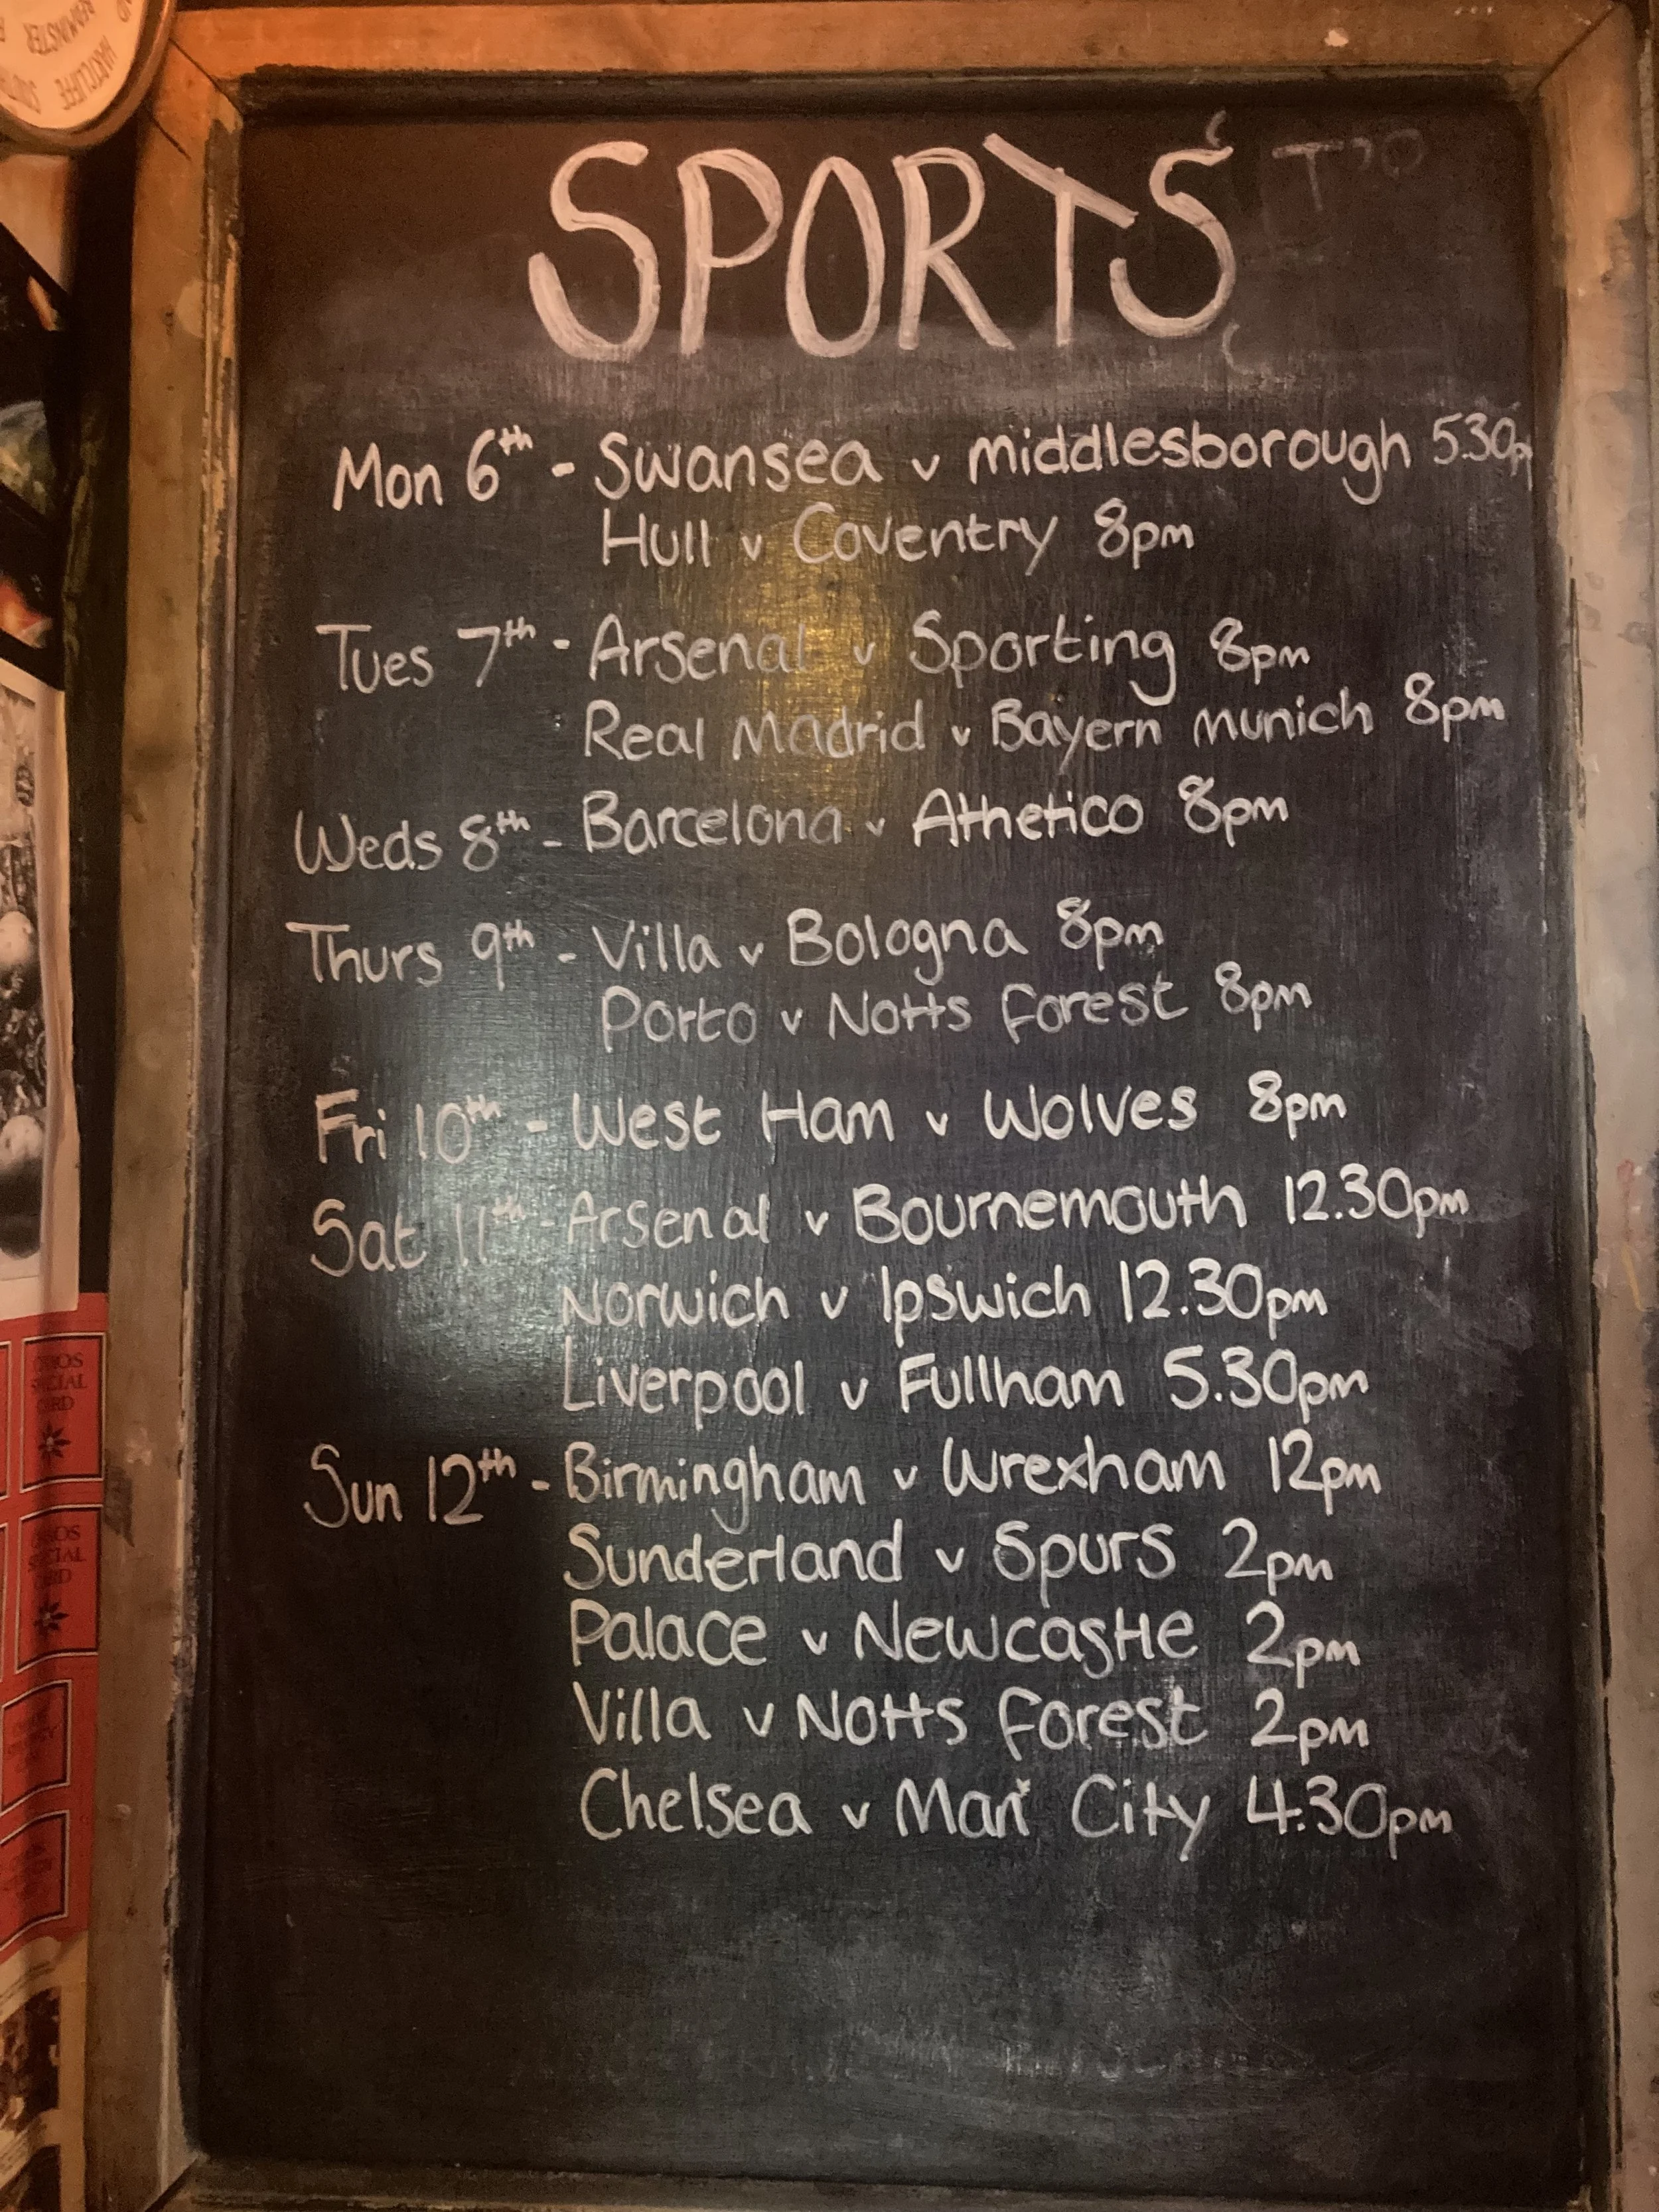 SPORTS
Mon 6th - Swansea v middlesborough 5.30p
Hull v Coventry 8pm
Tues 7th - Arsenal v Sporting 8pm
Real Madrid v Bayern munich 8pm
Weds 8th - Barcelona v Athetico 8pm
Thurs 9th - Villa v Bologna 8pm
Porto v Notts Forest 8pm
Fri 10th - West Ham v Wolves 8pm
Sat 11th - Arsenal v Bournemouth 12.30pm
Norwich v Ipswich 12.30pm
Liverpool v Fullham 5.30pm
Sun 12th - Birmingham v Wrexham 12pm
Sunderland v Spurs 2pm
Palace v Newcastle 2pm
Villa v Notts Forest 2pm
Chelsea v Man City 4.30pm
HARTCLIFFE
SOCIAL
SOCIAL